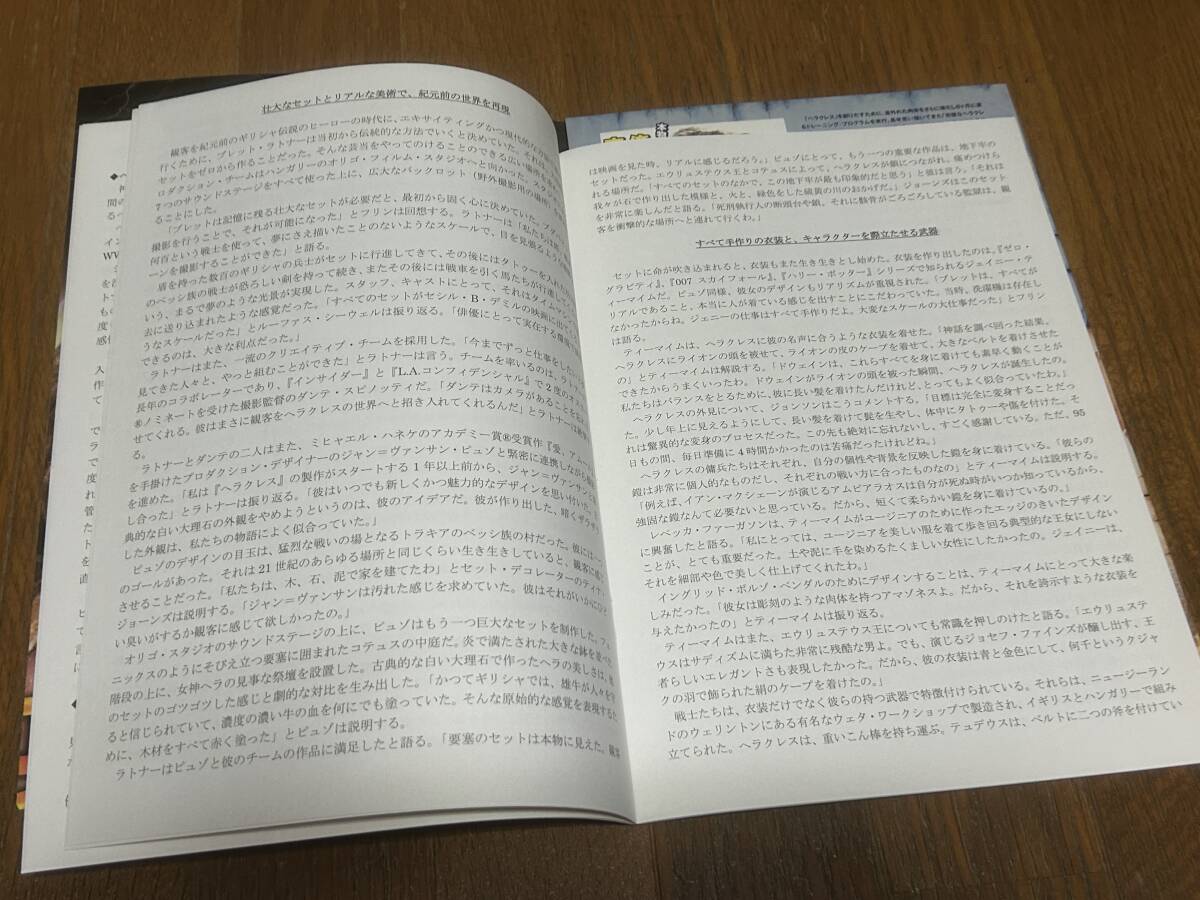 壮大なセットとリアルな美術で、紀元前の世界を再現
観客を紀元前のギリシャ伝説のヒーローの時代に、エキサイティングかつ現代的な方法で
行くために、ブレット・ラトナーは当初から伝統的な方法でいくと決めていた。それは
セットをゼロから作ることだった。そんな芸当をやってのけることのできる広い場所を求め
ロダクション・チームはハンガリーのオリゴ・フィルム・スタジオへと向かった。スタジオ
7つのサウンドステージをすべて使った上に、広大なバックロット（野外撮影用の場所）を
ることにした。
「ブレットは記憶に残る壮大なセットが必要だと、最初から固く心に決めていた。ブダペ
撮影を行うことで、それが可能になった」とフリンは回想する。ラトナーは「私たちは
何百という戦士を使って、夢にさえ描いたことのないようなスケールで、目を見張るような
ーンを撮影することができた」と語る。
盾を持った数百のギリシャの兵士がセットに進行してきて、その後にはタトゥーを入れた
のベッシ族の戦士が恐ろしい剣を持って続き、またその後には戦車を引く馬たちが行進して
いう、まるで夢のような光景が実現した。スタッフ、キャストにとって、それはタイムマシン
去に送り込まれたような感覚だった。「すべてのセットがセシル・B・デミルの映画に出て
うなスケールだった」とルーファス・シーウェルは振り返る。「俳優にとって実在する環境で
できるのは、大きな利点だった。」
ラトナーはまた、一流のクリエイティブ・チームを採用した。「今までずっと仕事をしたい
見てきた人々と、やっと組むことができた」とラトナーは言う。チームを率いるのは、ラトナ
長年のコラボレーターであり、『インサイダー』と『L.A.コンフィデンシャル』で2度のオ
®ノミネートを受けた撮影監督のダンテ・スピノッティだ。「ダンテはカメラがあることを忘れ
せてくれる。彼はまさに観客をヘラクレスの世界へと招き入れてくれるんだ」とラトナーは
ラトナーとダンテの二人はまた、ミヒャエル・ハネケのアカデミー賞®受賞作『愛、アムール』
を手掛けたプロダクション・デザイナーのジャン＝ヴァンサン・ピュゾと緊密に連携しながら
を進めた。「私は『ヘラクレス』の製作がスタートする1年以上前から、ジャン＝ヴァンサンと
し合った」とラトナーは振り返る。「彼はいつでも新しくかつ魅力的なデザインを思い付いた。
典的な白い大理石の外観をやめようというのは、彼のアイデアだ。彼が作り出した、暗くザラザラ
した外観は、私たちの物語によく似合っていた。」
ピュゾのデザインの目玉は、猛烈な戦いの場となるトラキアのベッシ族の村だった。彼には一つ
のゴールがあった。それは21世紀のあらゆる場所と同じくらい生き生きしていると、観客に感じ
させることだった。「私たちは、木、石、泥で家を建てたわ」とセット・デコレーターのティナ・
ジョーンズは説明する。「ジャン＝ヴァンサンは汚れた感じを求めていた。彼はそれがいかにひど
い臭いがするか観客に感じて欲しかったの。」
オリゴ・スタジオのサウンドステージの上に、ピュゾはもう一つ巨大なセットを制作した。フェ
ニックスのようにそびえ立つ要塞に囲まれたコテュスの中庭だ。炎で満たされた大きな鉢を並べた
階段の上に、女神ヘラの見事な祭壇を設置した。古典的な白い大理石で作ったヘラの美しさは、他
のセットのゴツゴツした感じと劇的な対比を生み出した。「かつてギリシャでは、雄牛が人々を守
ると信じられていて、濃度の濃い牛の血を何にでも塗っていた。そんな原始的な感覚を表現するた
めに、木材をすべて赤く塗った」とピュゾは説明する。
ラトナーはピュゾと彼のチームの作品に満足したと語る。「要塞のセットは本物に見えた。観客
は映画を見た時、リアルに感じるだろう。」ピュゾにとって、もう一つの重要な作品は、地下牢の
セットだった。エウリュステウス王とコテュスによって、ヘラクレスが鎖につながれ、痛めつけら
れる場所だ。「すべてのセットのなかで、この地下牢が最も印象的だと思う」と彼は言う。「それは
我々が石で作り出した模様と、火と、緑色をした硫黄の川のおかげだ。」ジョーンズはこのセット
を非常に楽しんだと語る。「死刑執行人の断頭台や鎖、それに骸骨がごろごろしている監獄は、観
客を衝撃的な場所へと連れて行くわ。」
すべて手作りの衣装と、キャラクターを際立たせる武器
セットに命が吹き込まれると、衣装もまた生き生きとし始めた。衣装を作り出したのは、『ゼロ・
グラビティ』、『007 スカイフォール』、『ハリー・ポッター』シリーズで知られるジェイニー・テ
ィーマイムだ。ピュゾ同様、彼女のデザインもリアリズムが重視された。「ブレットは、すべてが
リアルであること、本当に人が着ている感じを出すことにこだわっていた。当時、洗濯機は存在し
なかったからね。ジェニーの仕事はすべて手作りだよ。大変なスケールの大仕事だった」とフリン
は語る。
ティーマイムは、ヘラクレスに彼の名声に合うような衣装を着せた。「神話を調べ回った結果、
ヘラクレスにライオンの頭を被せて、ライオンの皮のケープを着せて、大きなベルトを着けさせた
の」とティーマイムは解説する。「ドウェインは、これらすべてを身に着けても素早く動くことが
できたからうまくいったわ。ドウェインがライオンの頭を被った瞬間、ヘラクレスが誕生したの。
私たちはバランスをとるために、彼に長い髪を着けたんだけれど、とってもよく似合っていたわ。」
ヘラクレスの外見について、ジョンソンはこうコメントする。「目標は完全に変身することだっ
た。少し年上に見えるようにして、長い髪を着けて髭を生やし、体中にタトゥーや傷を付けた。そ
れは驚異的な変身のプロセスだった。この先も絶対に忘れないし、すごく感謝している。ただ、95
日もの間、毎日準備に4時間かかったのは苦痛だったけれどね。」
ヘラクレスの傭兵たちはそれぞれ、自分の個性や背景を反映した鎧を身に着けている。「彼らの
鎧は非常に個人的なものだし、それぞれの戦い方に合ったものなの」とティーマイムは説明する。
「例えば、イアン・マクシェーンが演じるアムピアラオスは自分が死ぬ時がいつか知っているから、
強固な鎧なんて必要ないと思っている。だから、短くて柔らかい鎧を身に着けているの。」
レベッカ・ファーガソンは、ティーマイムがユージニアのために作ったエッジのきいたデザイン
に興奮したと語る。「私にとっては、ユージニアを美しい服を着て歩き回る典型的な王女にしない
ことが、とても重要だった。土や泥に手を染めるたくましい女性にしたかったの。ジェイニーは、
それを細部や色で美しく仕上げてくれたわ。」
イングリッド・ボルゾ・ベルダルのためにデザインすることは、ティーマイムにとって大きな楽
しみだった。「彼女は彫刻のような肉体を持つアマゾネスよ。だから、それを誇示するような衣装を
与えたかったの」とティーマイムは振り返る。
ティーマイムはまた、エウリュステウス王についても常識を押しのけたと語る。「エウリュステ
ウスはサディズムに満ちた非常に残酷な男よ。でも、演じるジョセフ・ファインズが醸し出す、王
者らしいエレガントさも表現したかった。だから、彼の衣装は青と金色にして、何千というクジャ
クの羽で飾られた絹のケープを着けたの。」
戦士たちは、衣装だけでなく彼らの持つ武器で特徴付けられている。それらは、ニュージーラン
ドのウェリントンにある有名なウェタ・ワークショップで製造され、イギリスとハンガリーで組み
立てられた。ヘラクレスは、重いこん棒を持ち運ぶ。テュデウスは、ベルトに二つの斧を付けてい